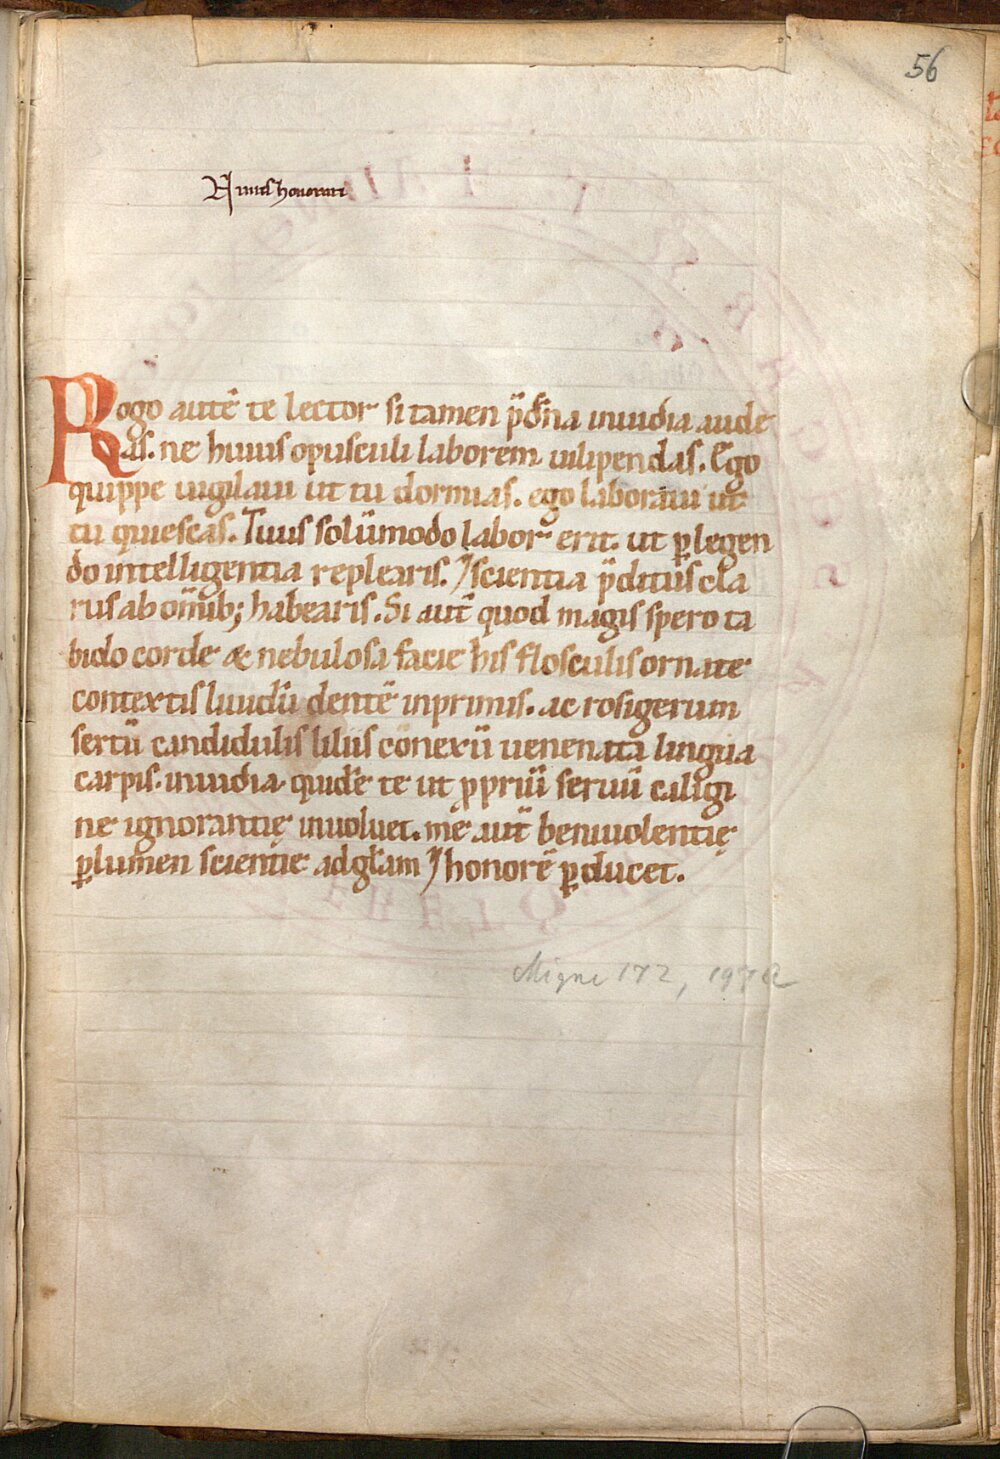 56
honorati
Rogo autē te lector si tamen p̄dn̄a inuidia aude
as. ne huius opusculi laborem uilipendas. Ego
quippe uigilaui ut tu dormias. ego laboraui ut
tu quiescas. Tuus solūmodo labor erit. ut ꝑlegen
do intelligentia replearis. ⁊ scientia p̄ditus cla
rus ab om̄ib; habearis. Si aut̄ quod magis spero ta
bido corde & nebulosa facie his flosculis ornate
contextis liuidū dentē inprimis. ac rosigerum
sertū candidulis liliis cōnexū uenenata lingua
carpis. inuidia quidē te ut ꝓpriū seruū caligi
ne ignorantię inuoluet. me aut̄ beniuolentię
ꝑ lumen scientie ad gl̄am ⁊ honorē ꝑducet.
Migne 172, 197